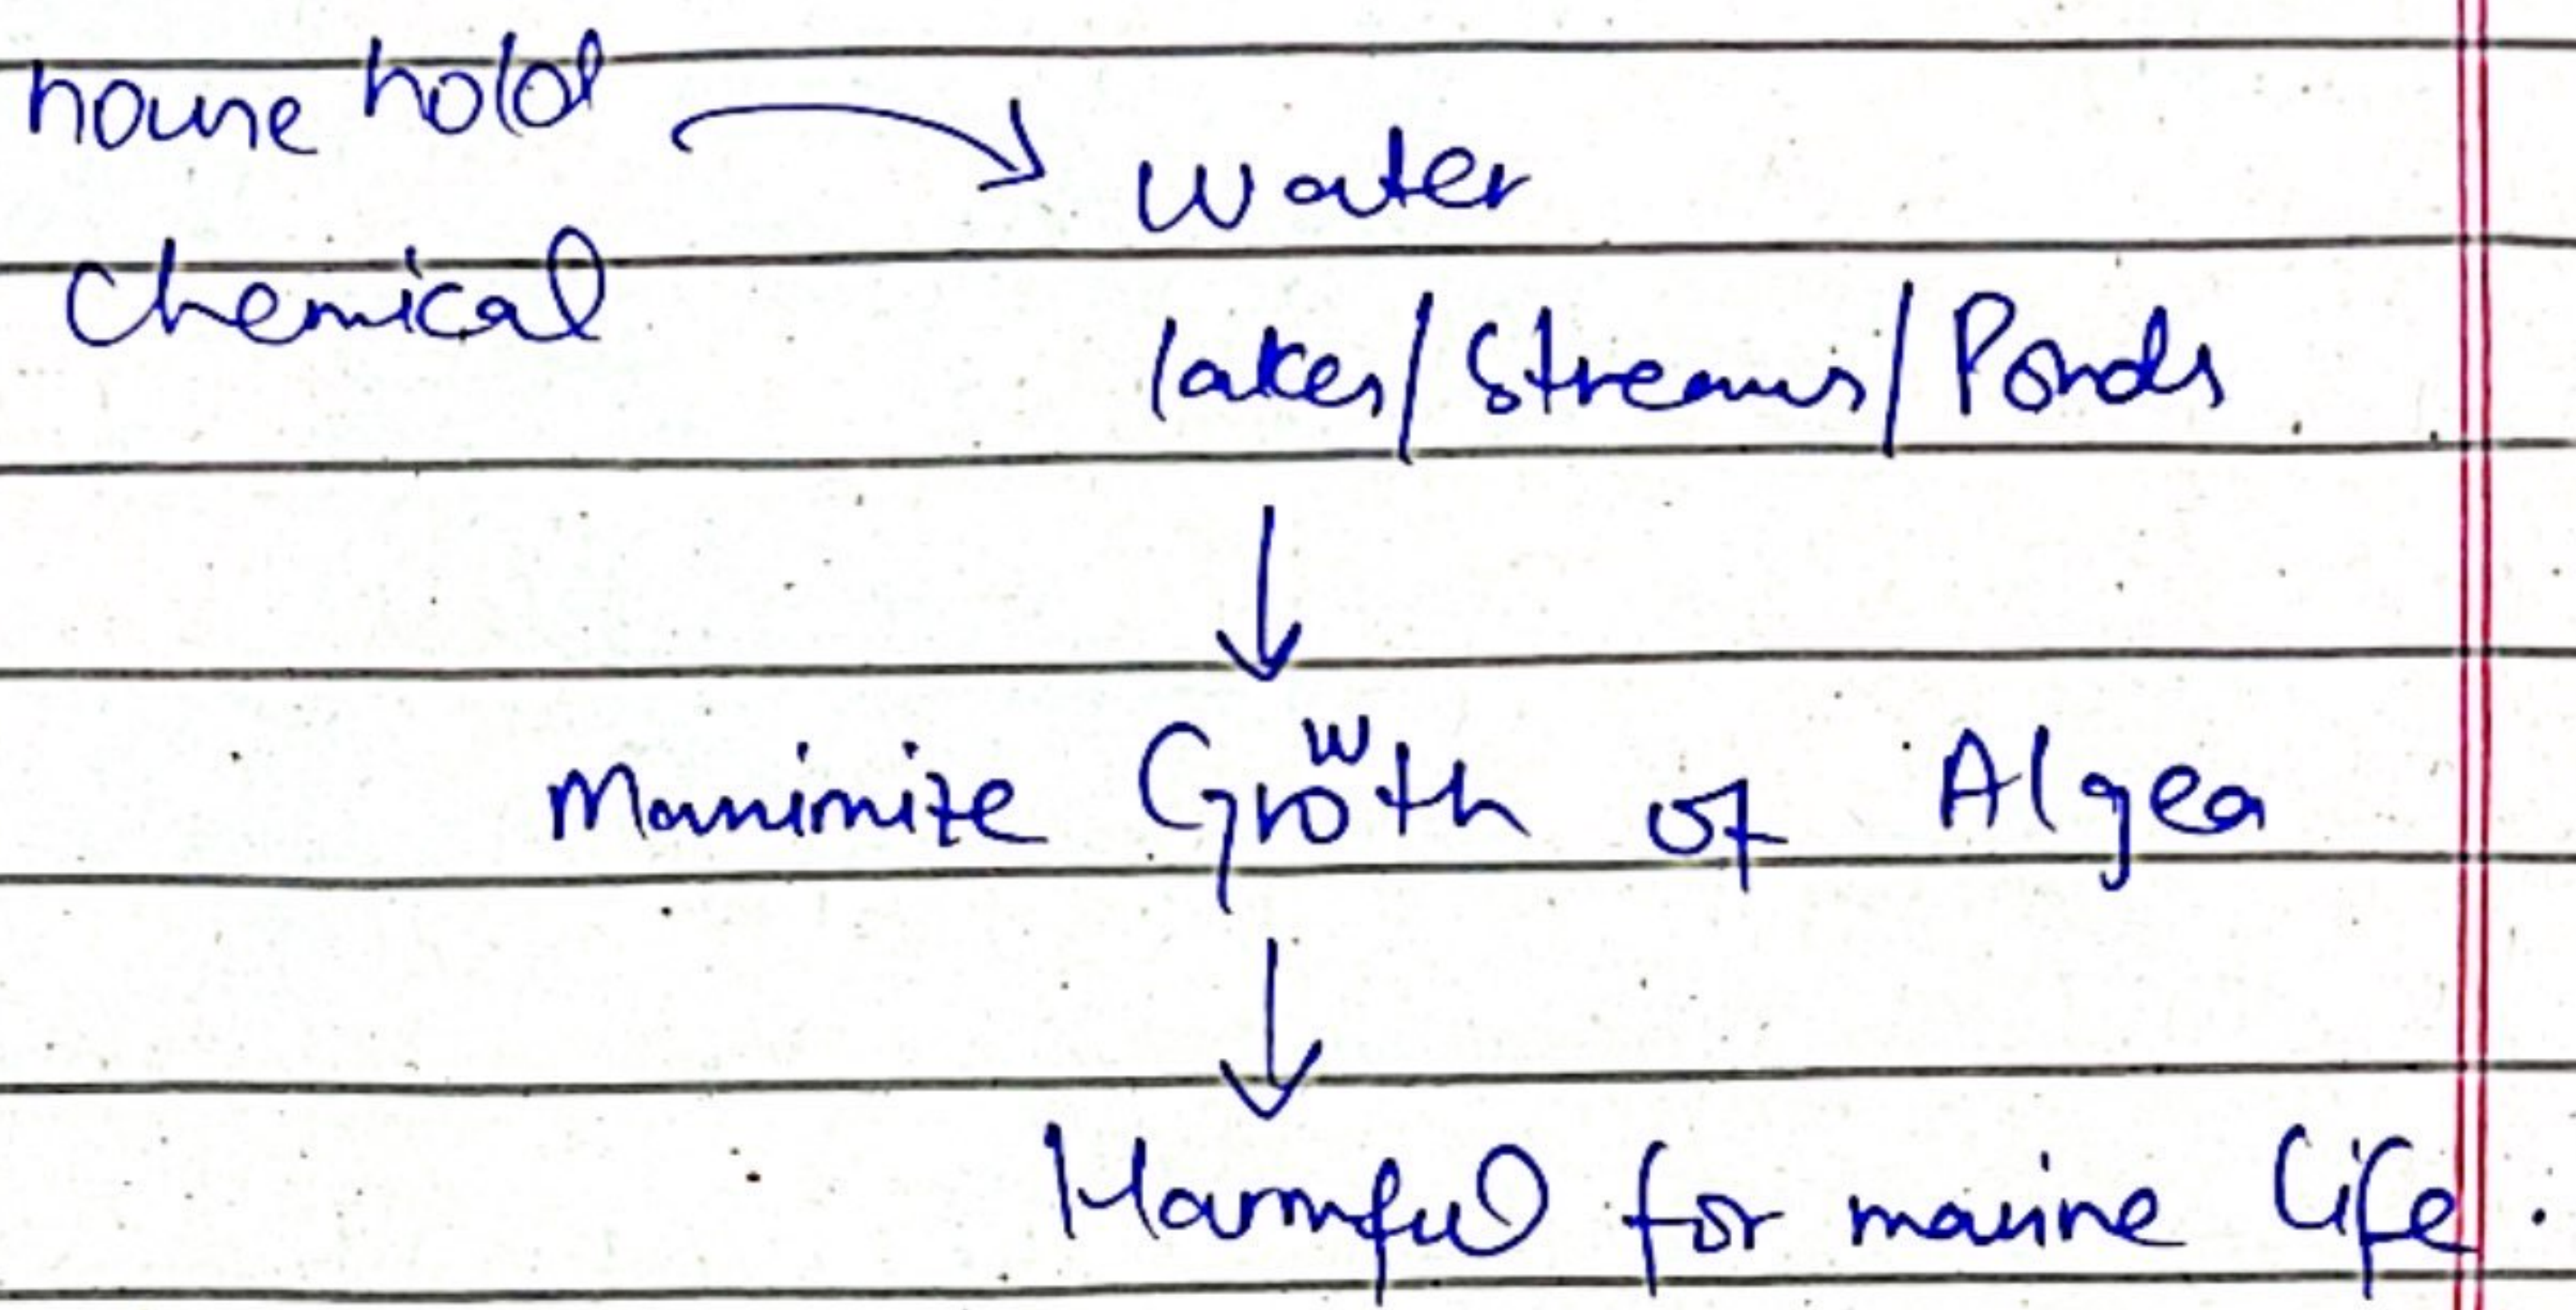 house hold
Water
Chemical
lakes/Streams/Ponds
Maximize Growth of Algea
Harmful for marine life.